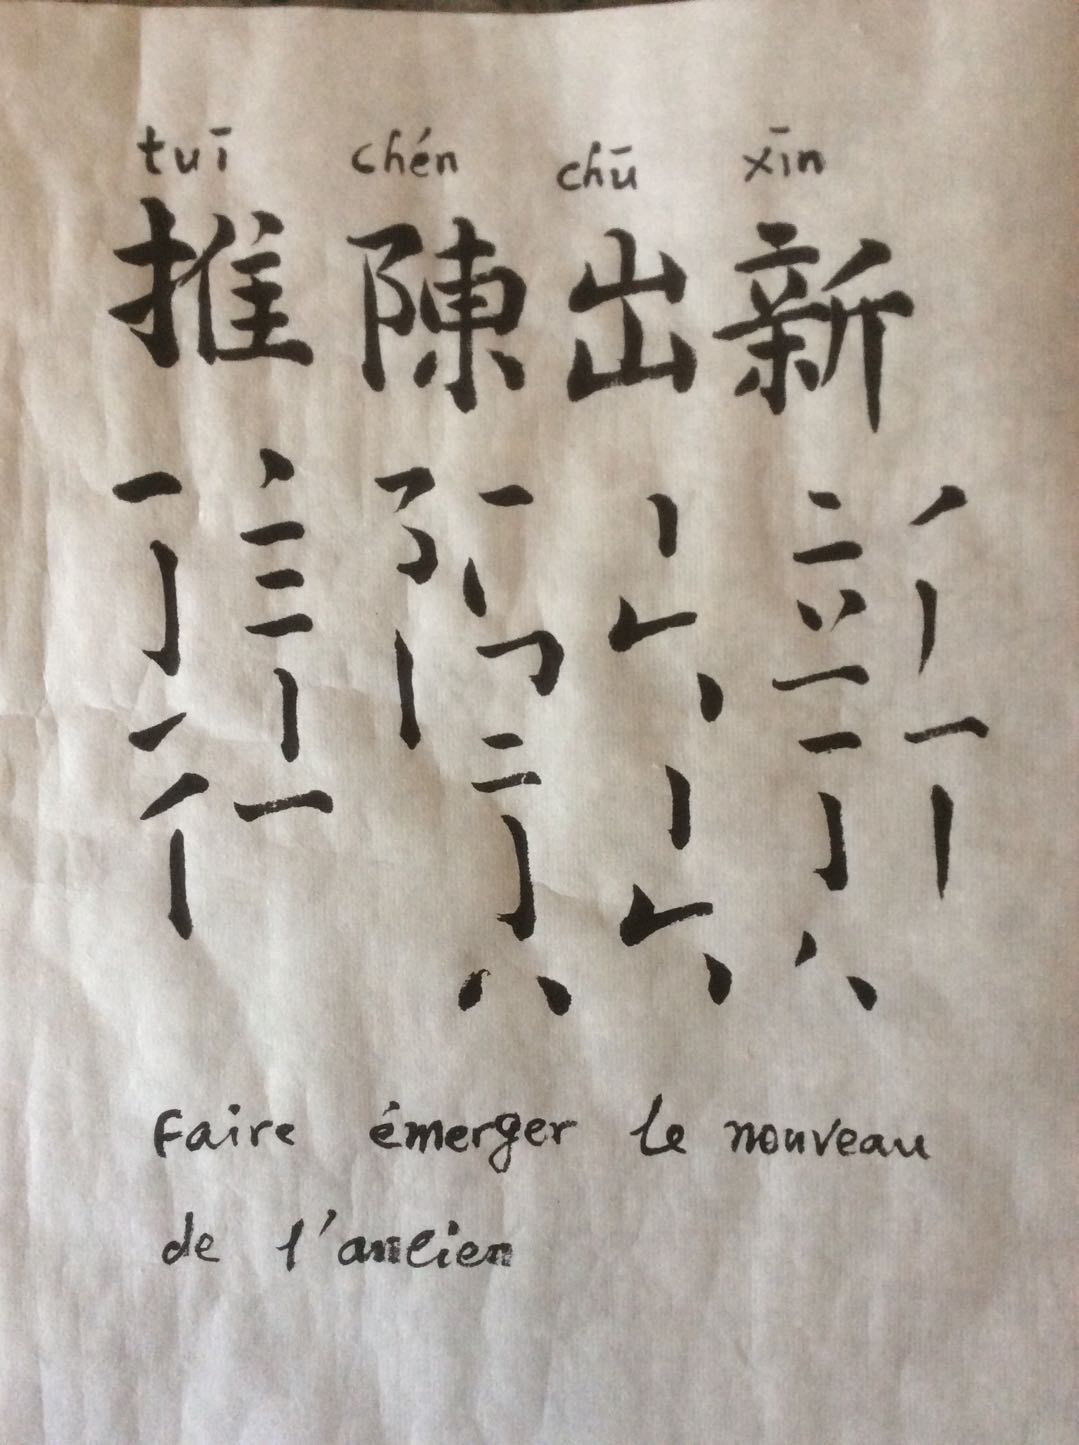 tuī chén chū xīn
推陳出新
Faire émerger le nouveau
de l'ancien